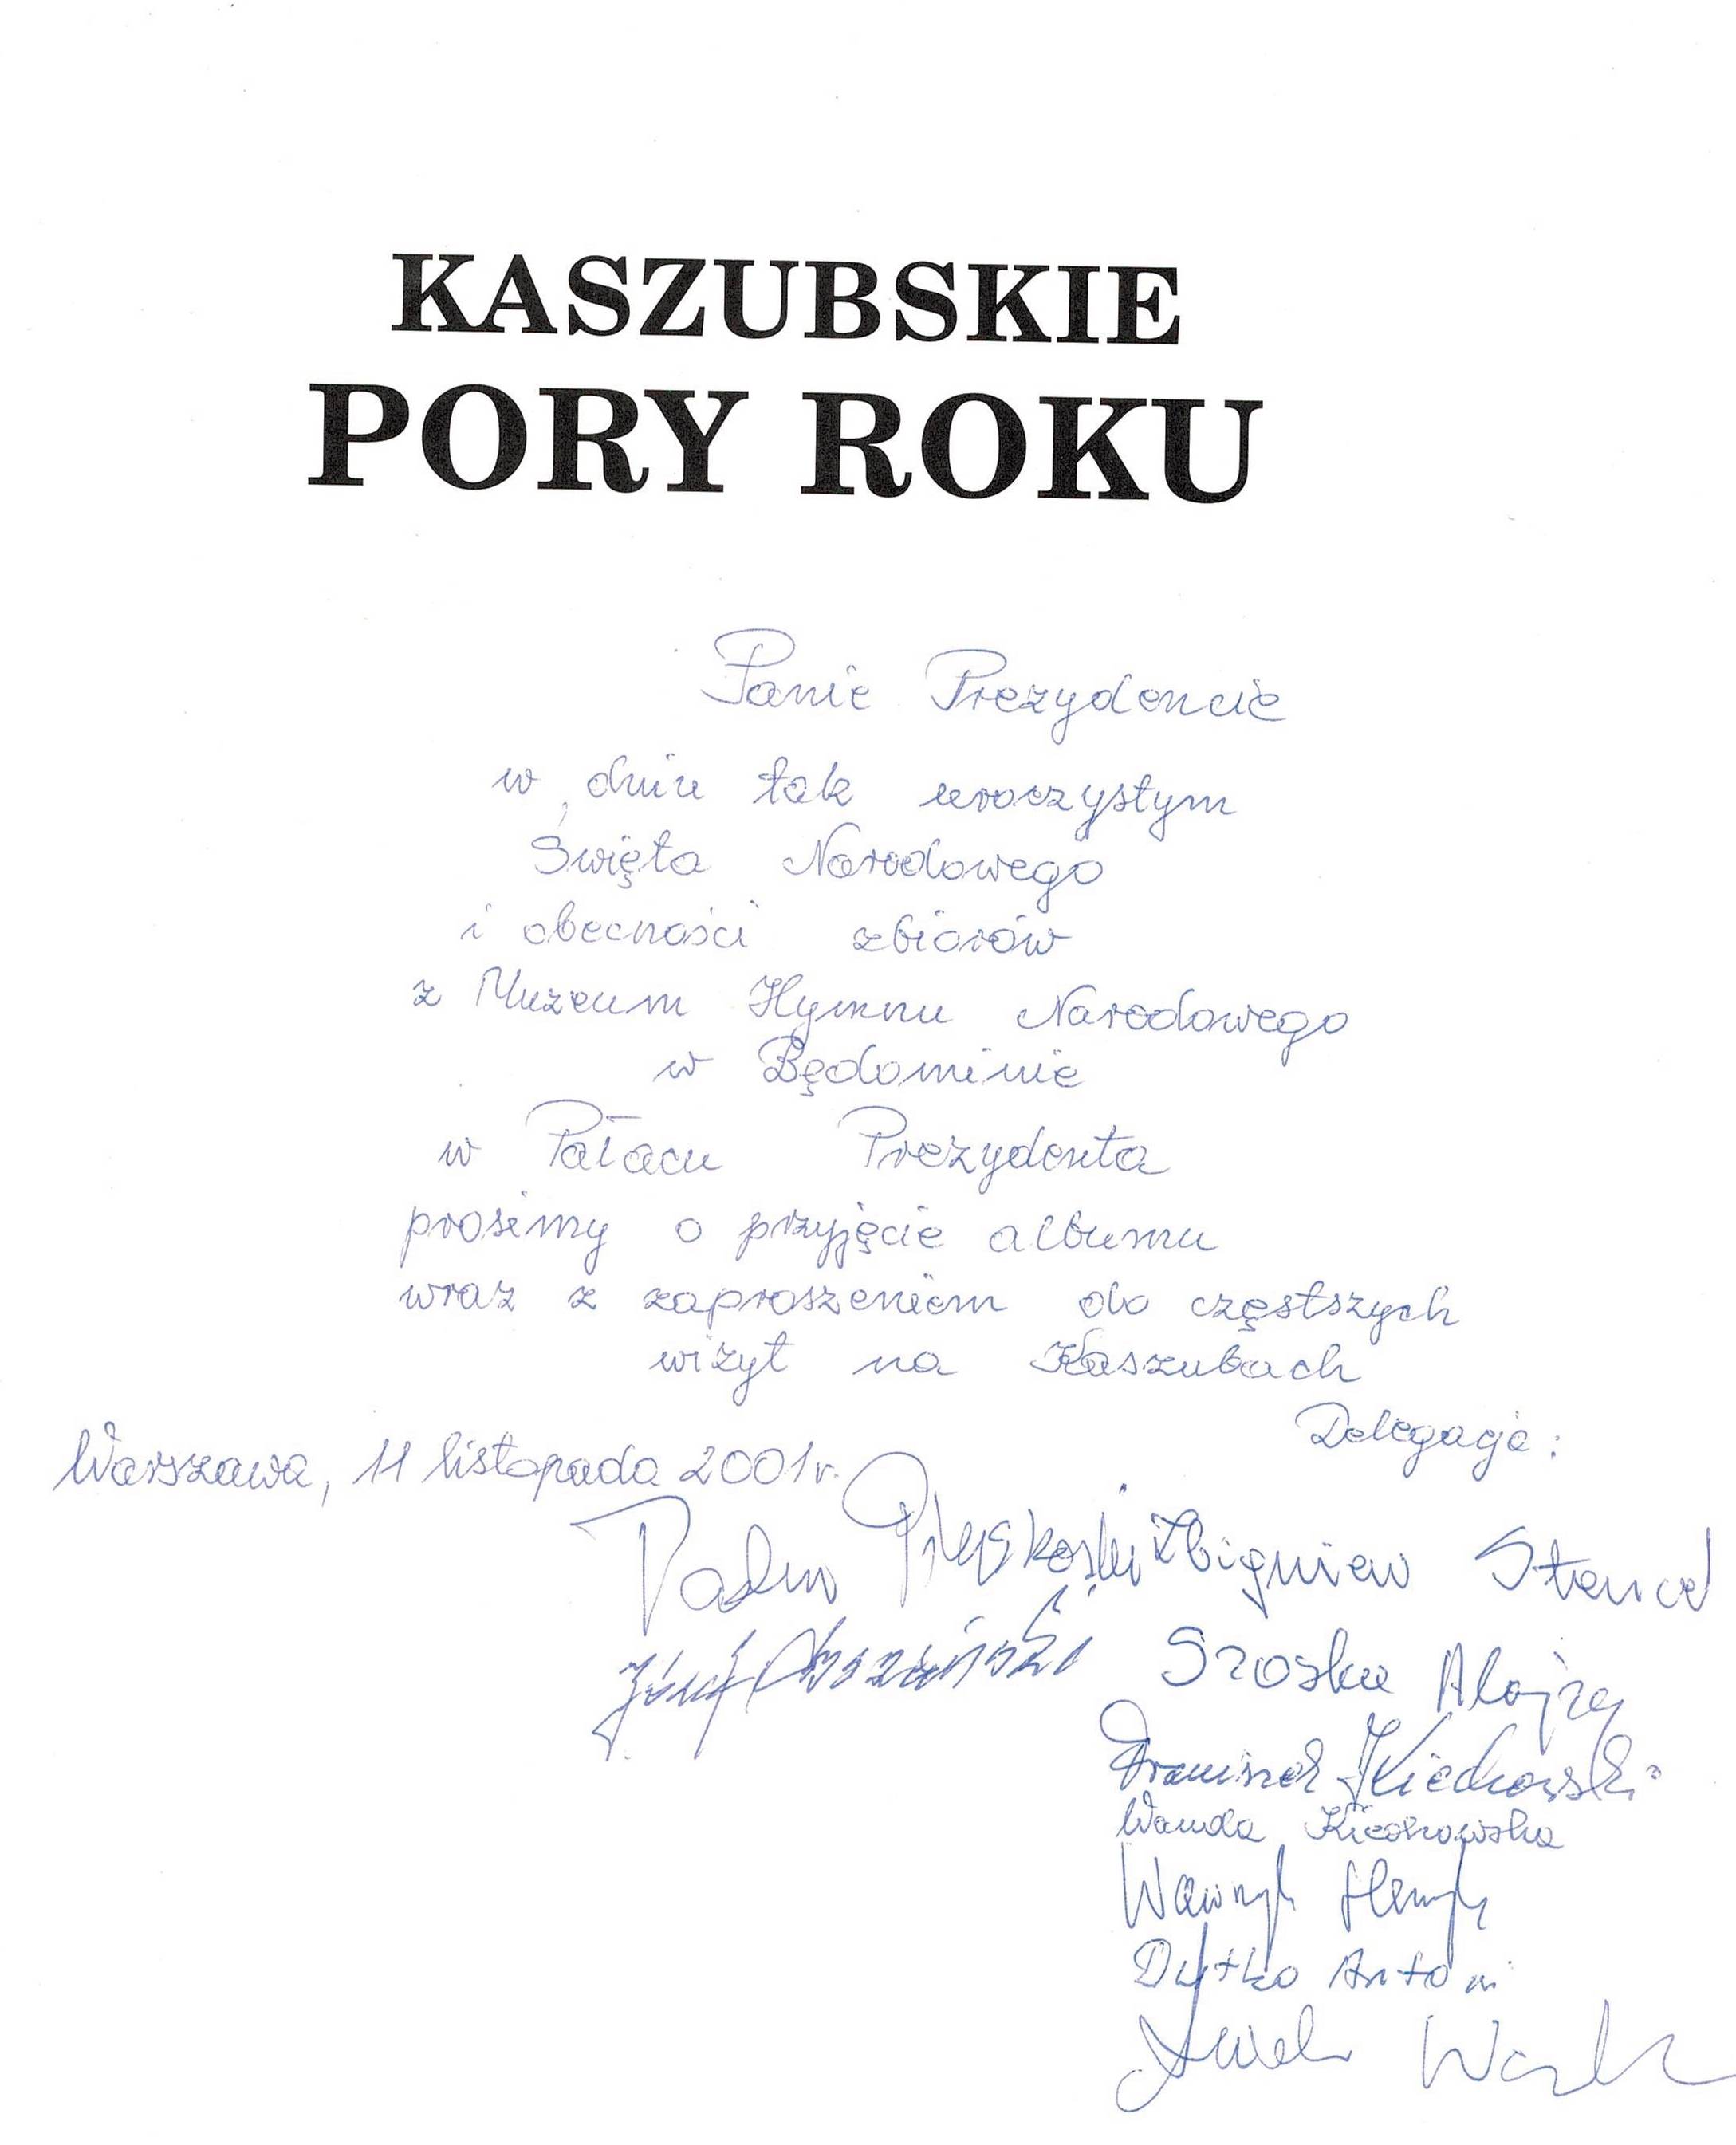 KASZUBSKIE
PORY ROKU
Panie Prezydencie
w dniu tak uroczystym
Święta Narodowego
i obecności zbiorów
z Muzeum Hymnu Narodowego
w Będominie
w Pałacu Prezydenta
prosimy o przyjęcie albumu
wraz z zaproszeniem do częstszych
wizyt na Kaszubach
Delegacje:
Warszawa, 11 listopada 2001r.
Zbigniew Stencel
Józef
Alojzy
Franciszek Kiedrowski
Wanda Kiedrowska
Henryk
Dytko Antoni